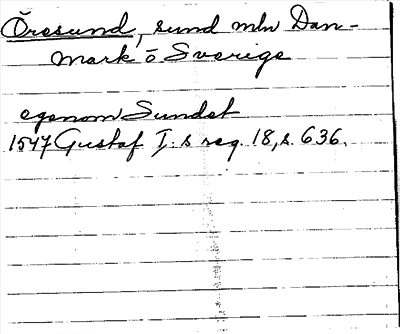 Öresund, sund mln Dan-
mark o Sverige
egenom Sundet
1547 Gustaf I:s reg. 18, s. 636.